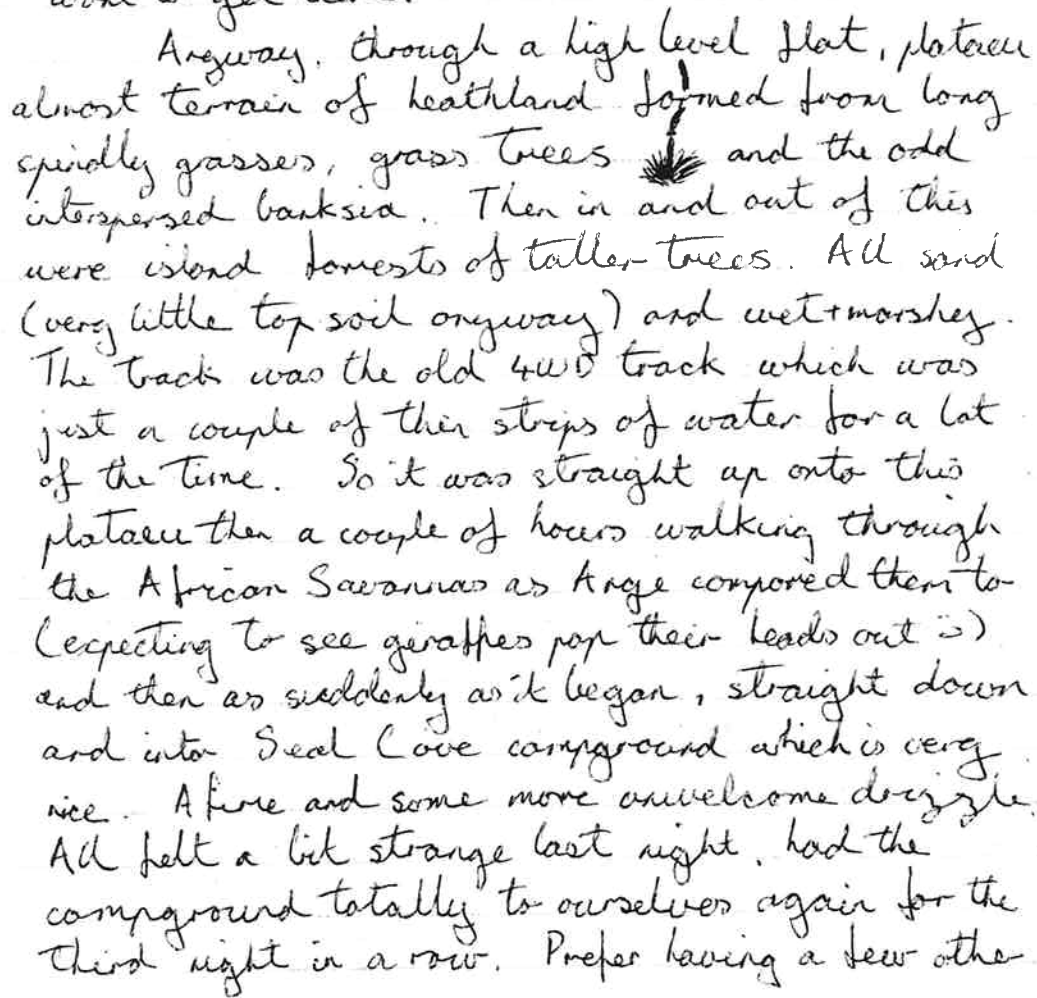 Anyway, through a high level flat, plataeu
almost terrain of heathland formed from long
spindly grasses, grass trees and the odd
interspersed banksia. Then in and out of this
were island forests of taller trees. All sand
(very little top soil anyway) and wet + marshy.
The track was the old 4WD track which was
just a couple of thin strips of water for a lot
of the time. So it was straight up onto this
plataeu then a couple of hours walking through
the African Savannas as Ange compared them to
(expecting to see giraffes pop their heads out :)
and then as suddenly as it began, straight down
and into Seal Cove campground which is very
nice. A fire and some more unwelcome drizzle.
All felt a bit strange last night, had the
campground totally to ourselves again for the
third night in a row. Prefer having a few other